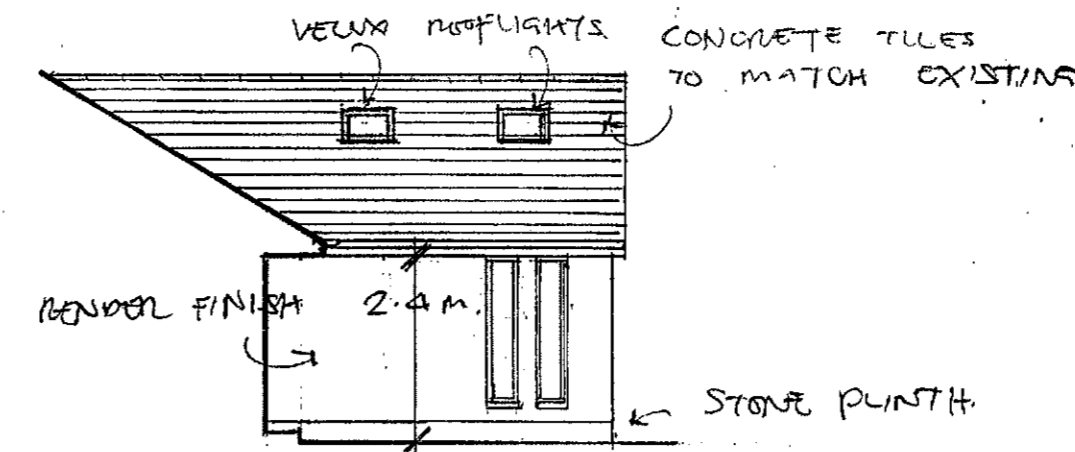 VELUX ROOFLIGHTS
CONCRETE TILES
TO MATCH EXISTING
RENDER FINISH
2.4 m.
STONE PLINTH.